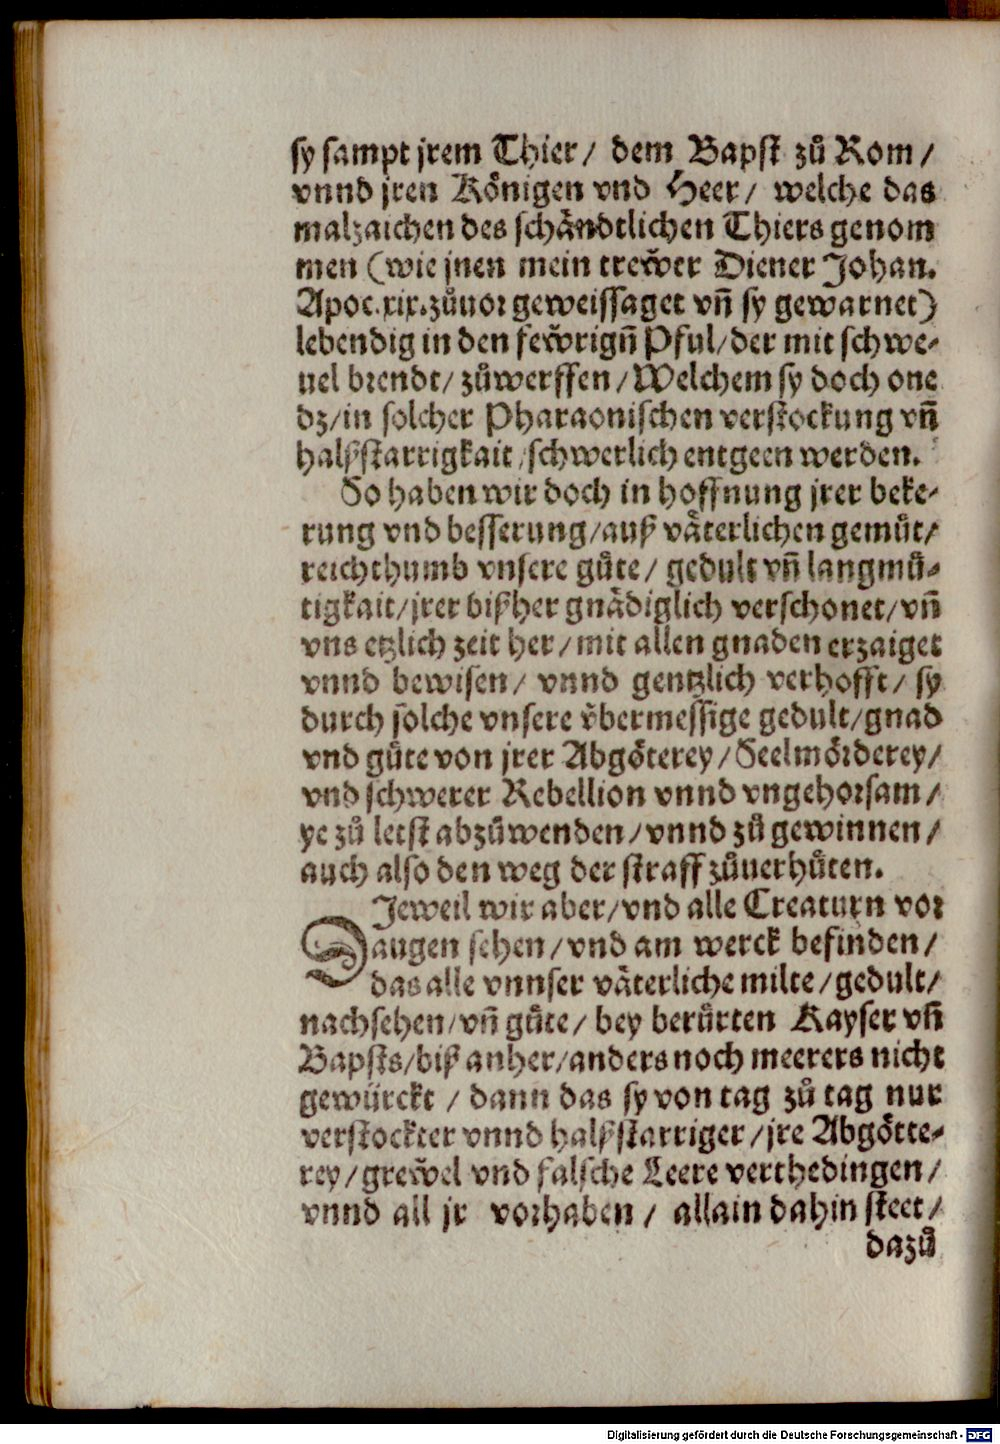 sy sampt jrem Thier / dem Bapst zů Rom /
vnnd jren Königen vnd Heer / welche das
malzaichen des schändtlichen Thiers genom
men (wie jnen mein trewer Diener Johan.
Apoc.xix.zůuor geweissaget vñ sy gewarnet)
lebendig in den fewrigñ Pful / der mit schwe-
uel brendt / zůwerffen / Welchem sy doch one
dz / in solcher Pharaonischen verstockung vñ
halßstarrigkait / schwerlich entgeen werden.
So haben wir doch in hoffnung jrer beke-
rung vnd besserung / auß väterlichen gemůt /
reichthumb vnsere gůte / gedult vñ langmů-
tigkait / jrer bißher gnädiglich verschonet / vñ
vns etzlich zeit her / mit allen gnaden erzaiget
vnnd bewisen / vnnd gentzlich verhofft / sy
durch solche vnsere v̈bermessige gedult / gnad
vnd gůte von jrer Abgöterey / Seelmörderey /
vnd schwerer Rebellion vnnd vngehorsam /
ye zů letst abzůwenden / vnnd zů gewinnen /
auch also den weg der straff zůuerhůten.
DJeweil wir aber / vnd alle Creaturn vor
augen sehen / vnd am werck befinden /
das alle vnnser väterliche milte / gedult /
nachsehen / vñ gůte / bey berůrten Kayser vñ
Bapsts / biß anher / anders noch meerers nicht
gewürckt / dann das sy von tag zů tag nur
verstockter vnnd halßstarriger / jre Abgötte-
rey / grewel vnd falsche Leere verthedingen /
vnnd all jr vorhaben / allain dahin steet /
dazů
Digitalisierung gefördert durch die Deutsche Forschungsgemeinschaft - DFG